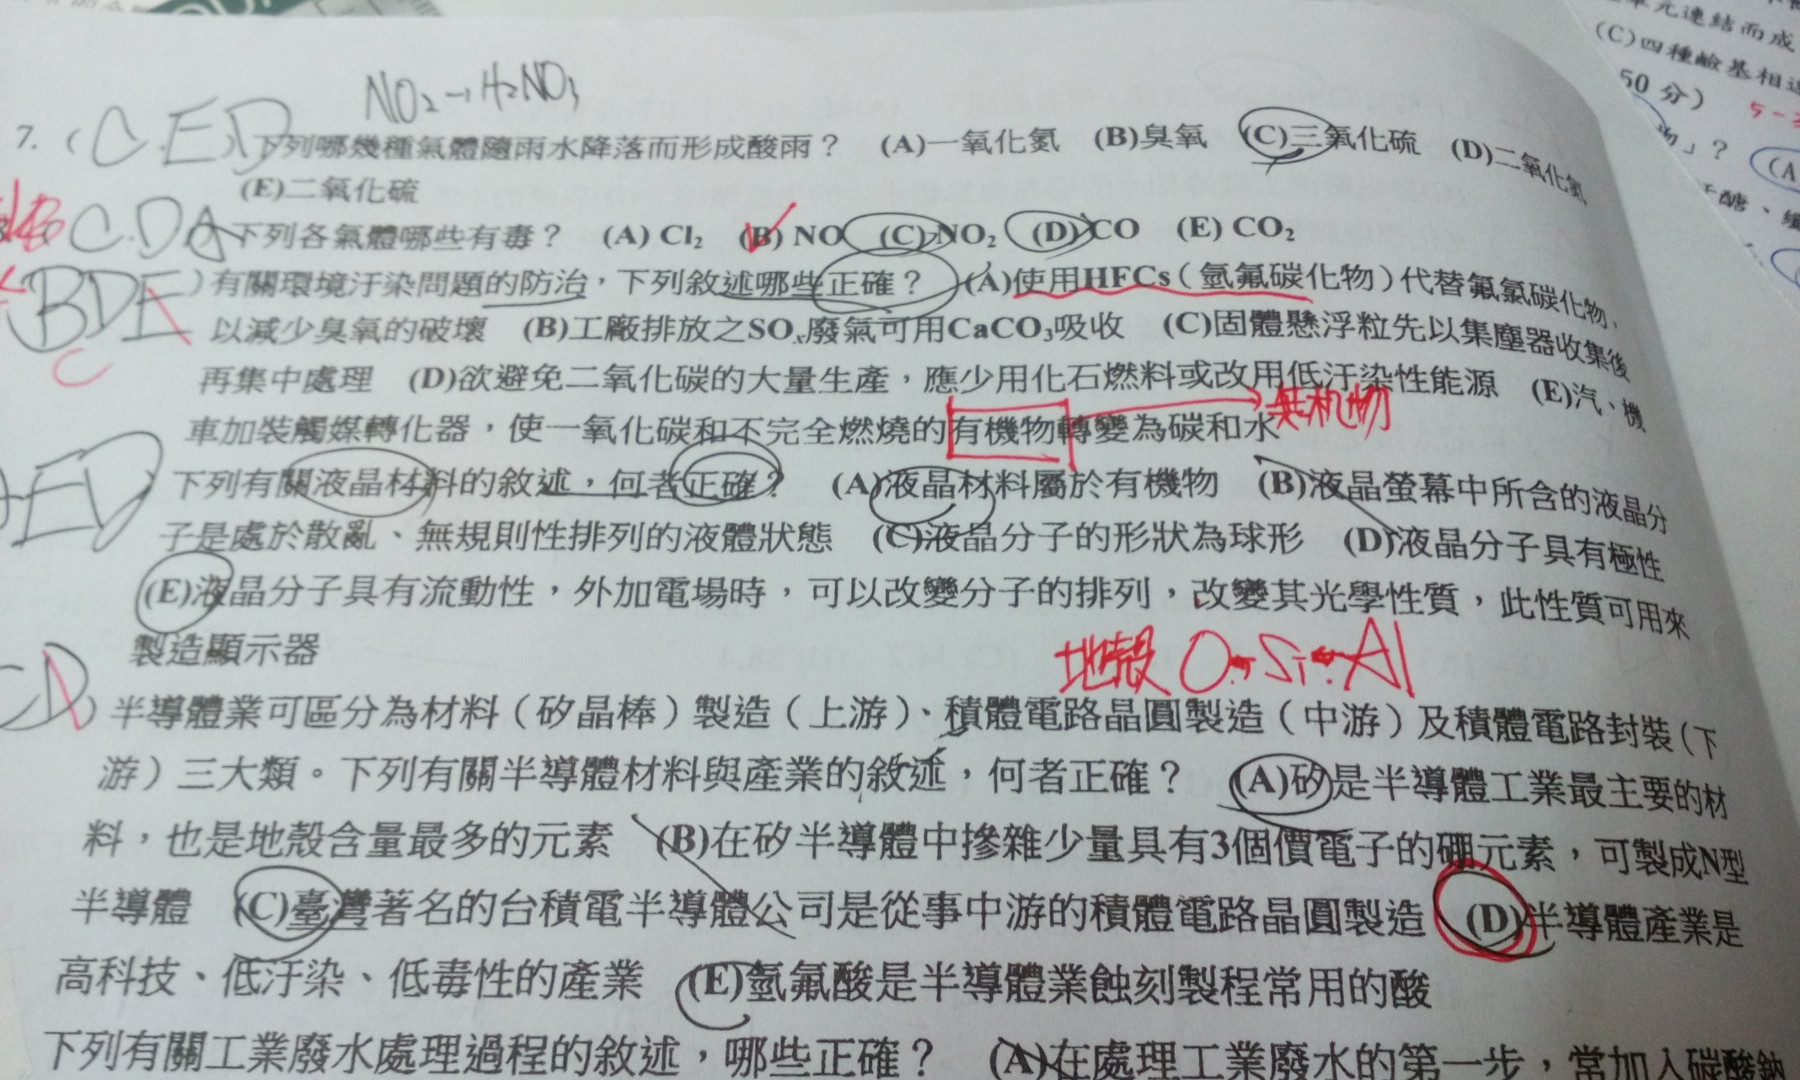 單元連結而成
(C)四種鹼基相
50 分)
5-3
NO₂→H₂NO₃
7. ( C.E.D )下列哪幾種氣體隨雨水降落而形成酸雨? (A)一氧化氮 (B)臭氧 (C)三氧化硫 (D)二氧化氮
(E)二氧化硫
C.DA )下列各氣體哪些有毒? (A) Cl₂ (B) NO (C) NO₂ (D) CO (E) CO₂
BDE )有關環境汙染問題的防治,下列敘述哪些正確? (A)使用HFCs(氫氟碳化物)代替氟氯碳化物,
C
以減少臭氧的破壞 (B)工廠排放之SOₓ廢氣可用CaCO₃吸收 (C)固體懸浮粒先以集塵器收集後
再集中處理 (D)欲避免二氧化碳的大量生產,應少用化石燃料或改用低汙染性能源 (E)汽、機
車加裝觸媒轉化器,使一氧化碳和不完全燃燒的有機物轉變為碳和水
無機物
ED 下列有關液晶材料的敘述,何者正確? (A)液晶材料屬於有機物 (B)液晶螢幕中所含的液晶分
子是處於散亂、無規則性排列的液體狀態 (C)液晶分子的形狀為球形 (D)液晶分子具有極性
(E)液晶分子具有流動性,外加電場時,可以改變分子的排列,改變其光學性質,此性質可用來
製造顯示器
地殼 O Si Al
CD )半導體業可區分為材料(矽晶棒)製造(上游)、積體電路晶圓製造(中游)及積體電路封裝(下
游)三大類。下列有關半導體材料與產業的敘述,何者正確? (A)矽是半導體工業最主要的材
料,也是地殼含量最多的元素 (B)在矽半導體中摻雜少量具有3個價電子的硼元素,可製成N型
半導體 (C)臺灣著名的台積電半導體公司是從事中游的積體電路晶圓製造 (D)半導體產業是
高科技、低汙染、低毒性的產業 (E)氫氟酸是半導體業蝕刻製程常用的酸
下列有關工業廢水處理過程的敘述,哪些正確? (A)在處理工業廢水的第一步,常加入碳酸鈉